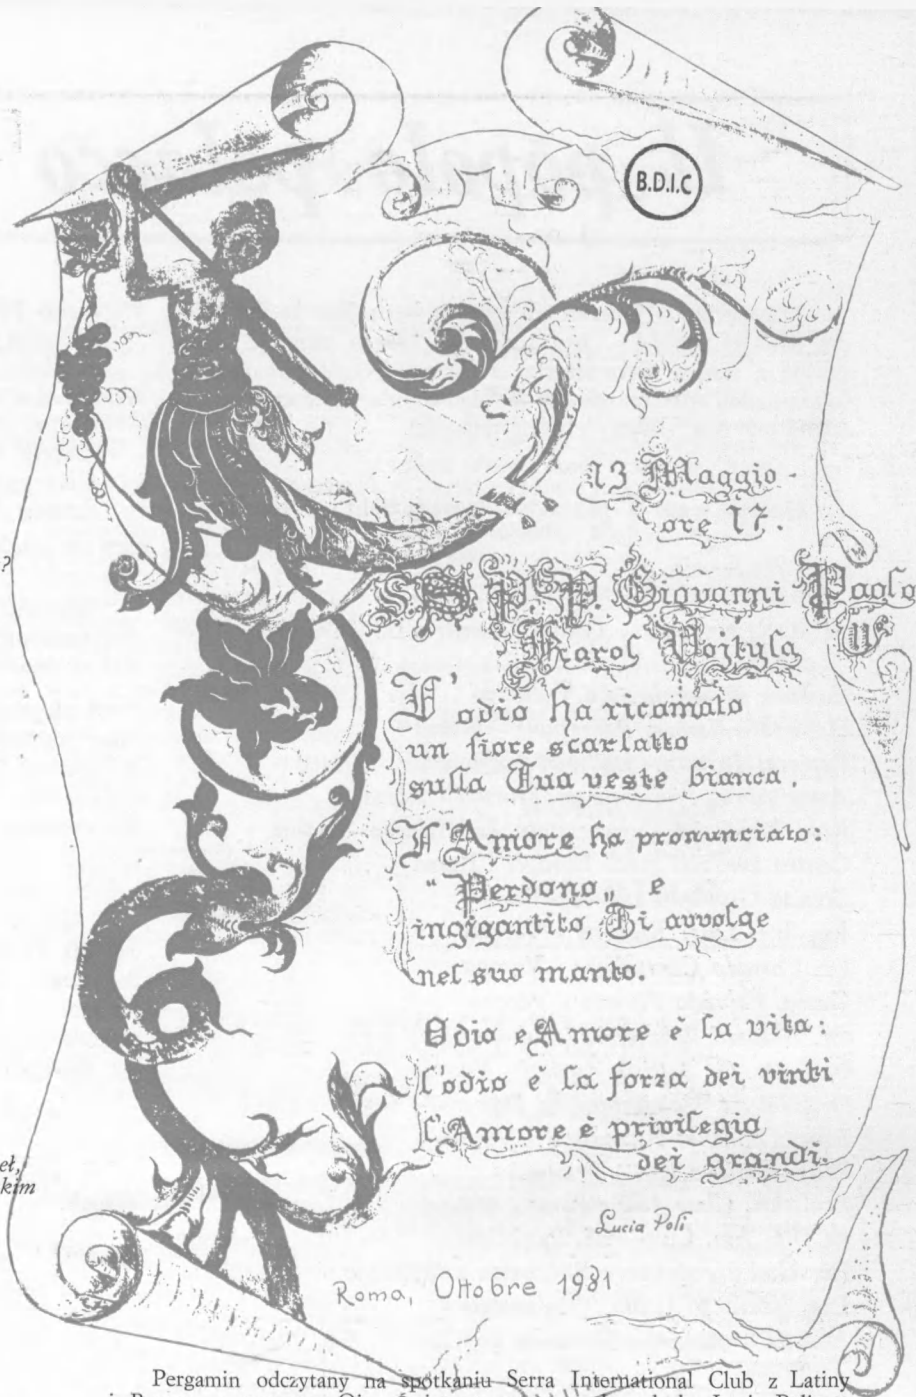 B.D.I.C
13 Maggio
ore 17.
S.S. P.P. Giovanni Paolo
Karol Wojtyla
L'odio ha ricamato
un fiore scarlatto
sulla Tua veste bianca.
L'Amore ha pronunciato:
"Perdono" e
ingigantito, Ti avvolge
nel suo manto.
Odio e Amore è la vita:
l'odio è la forza dei vinti
l'Amore è privilegio
dei grandi.
Lucia Poli
Roma, Ottobre 1981
?
eł,
kim
Pergamin odczytany na spotkaniu Serra International Club z Latiny